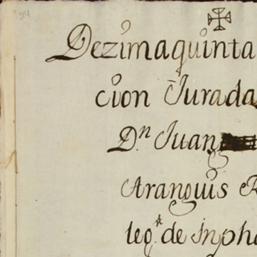 Dezimaquinta
cion Jurada
D.n Juan
Aranguis R
leg.x de Inpha